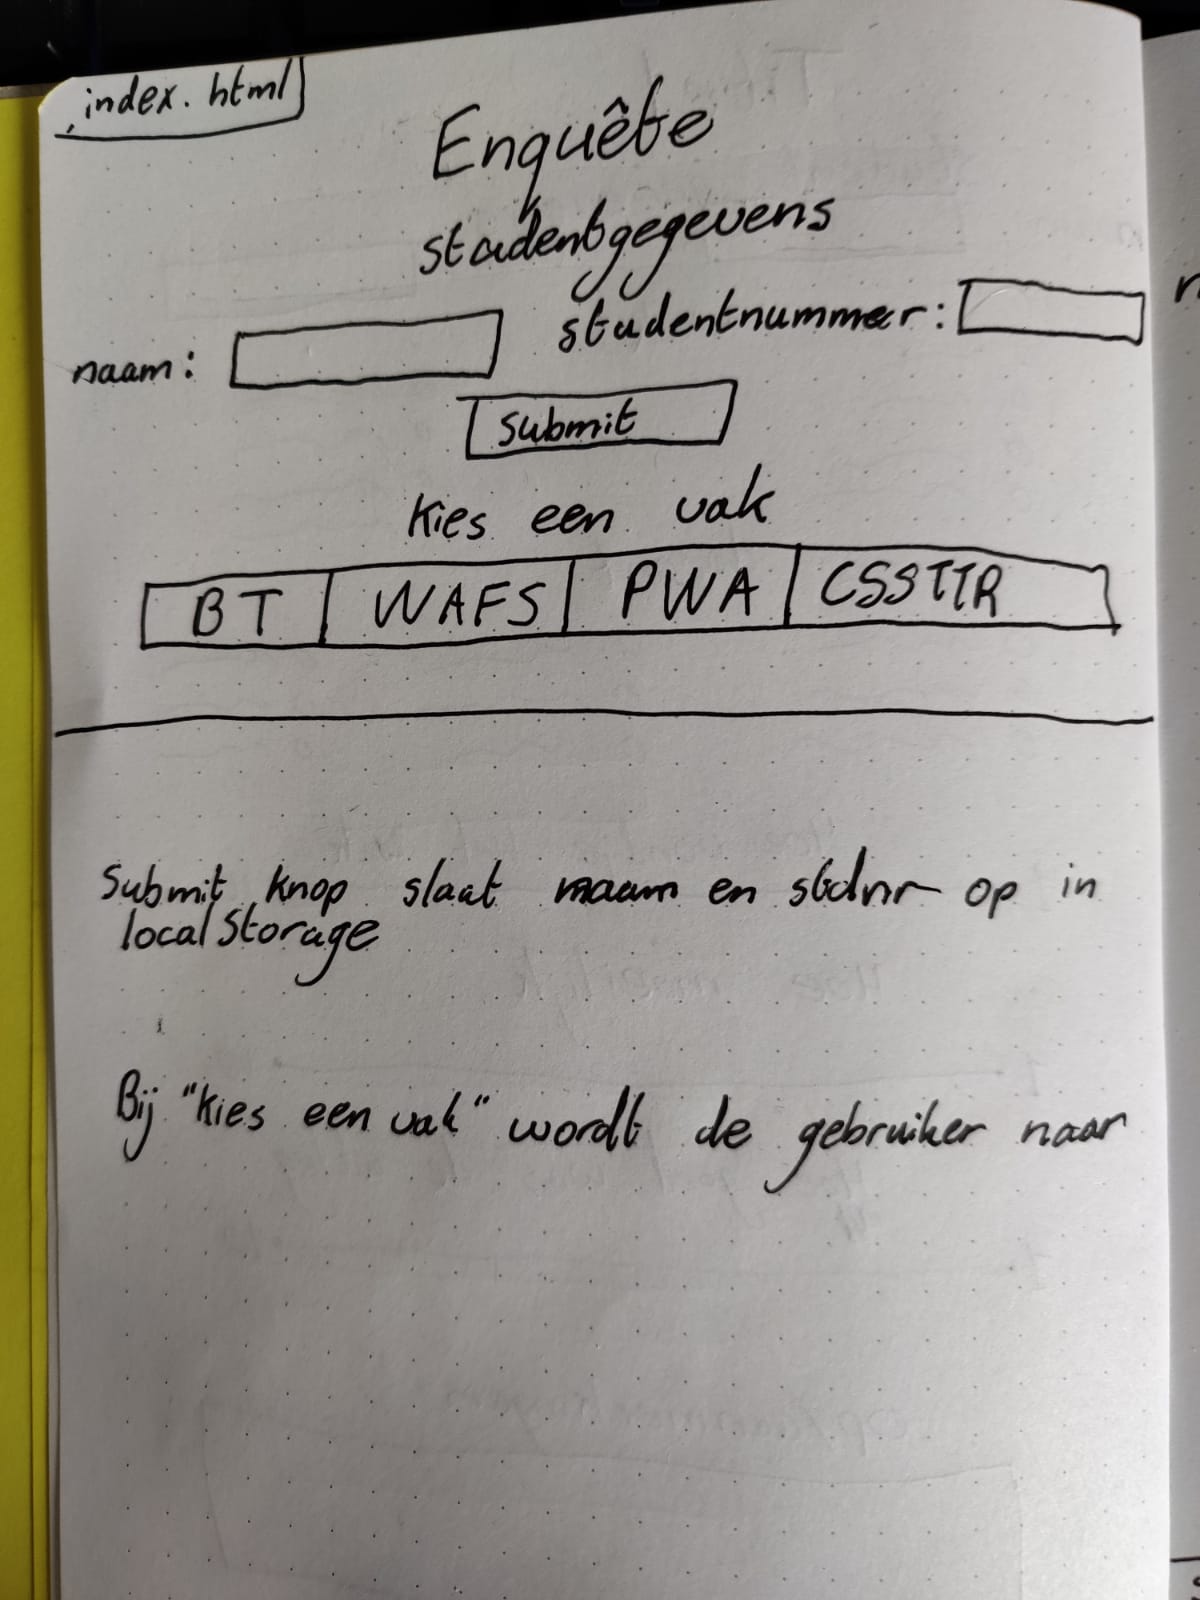 index.html
Enquête
studentgegevens
naam:
studentnummer:
submit
Kies een vak
BT WAFS PWA CSSTTR
Submit knop slaat naam en stdnr op in
localStorage
Bij "kies een vak" wordt de gebruiker naar